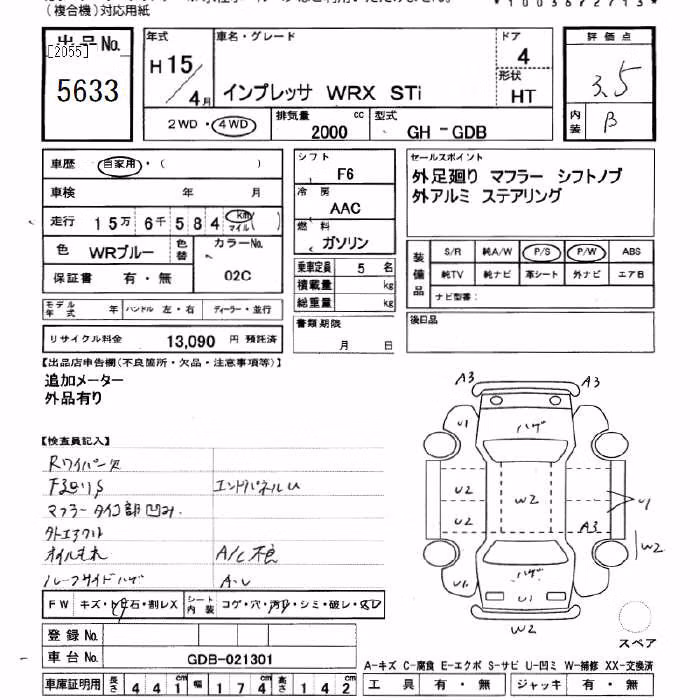 (複合機)対応用紙
出品No.
[2055]
5633
年式
H15/4月
車名・グレード
インプレッサ WRX STi
ドア
4
形状
HT
評価点
3.5
内装
B
2WD・4WD
排気量
2000 cc
型式
GH-GDB
車歴 自家用・( )
車検 年 月
走行 15万6千584 km マイル( )
色 WRブルー
色替
カラーNo.
02C
保証書 有・無
シフト
F6
冷房
AAC
燃料
ガソリン
乗車定員 5 名
積載量 kg
総重量 kg
書類期限
月 日
セールスポイント
外足廻り マフラー シフトノブ
外アルミ ステアリング
装備品
S/R 純A/W P/S P/W ABS
純TV 純ナビ 革シート 外ナビ エアB
ナビ型番:
後日品
モデル年式 年 ハンドル 左・右 ディーラー・並行
リサイクル料金 13,090 円 預託済
【出品店申告欄(不良箇所・欠品・注意事項等)】
追加メーター
外品有り
【検査員記入】
Rワイパー欠
F廻りS
エンドパネルU
マフラータイコ部凹み.
外エアクル
オイルモレ
A/C不良
ルーフサイドハゲ
A-U
A3
A3
U1
ハゲ
U2
U2
W2
U1
A3
W2
U1
ハゲ
U1
U1
W2
スペア
FW キズ・ト石・割レX
シート内装 コゲ・穴・汚レ・シミ・破レ・スレ
登録No.
車台No. GDB-021301
車庫証明用 長さ 441cm 幅 174cm 高さ 142cm
A-キズ C-腐食 E-エクボ S-サビ U-凹ミ W-補修 XX-交換済
工具 有・無 ジャッキ 有・無